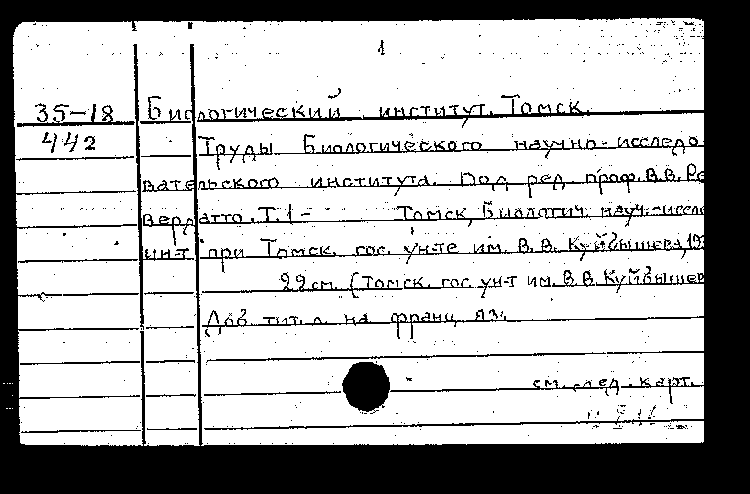 1
35-18 Биологический институт. Томск.
442 Труды Биологического научно-исследо
вательского института. Под ред. проф. В.В. Ре
вердатто. Т. 1- Томск, Биологич. науч.-иссле
ин-т при Томск. гос. ун-те им. В.В. Куйбышева, 193
22 см. (Томск. гос. ун-т им. В.В. Куйбышев
Доб. тит. л. на франц. яз.
см. след. карт.